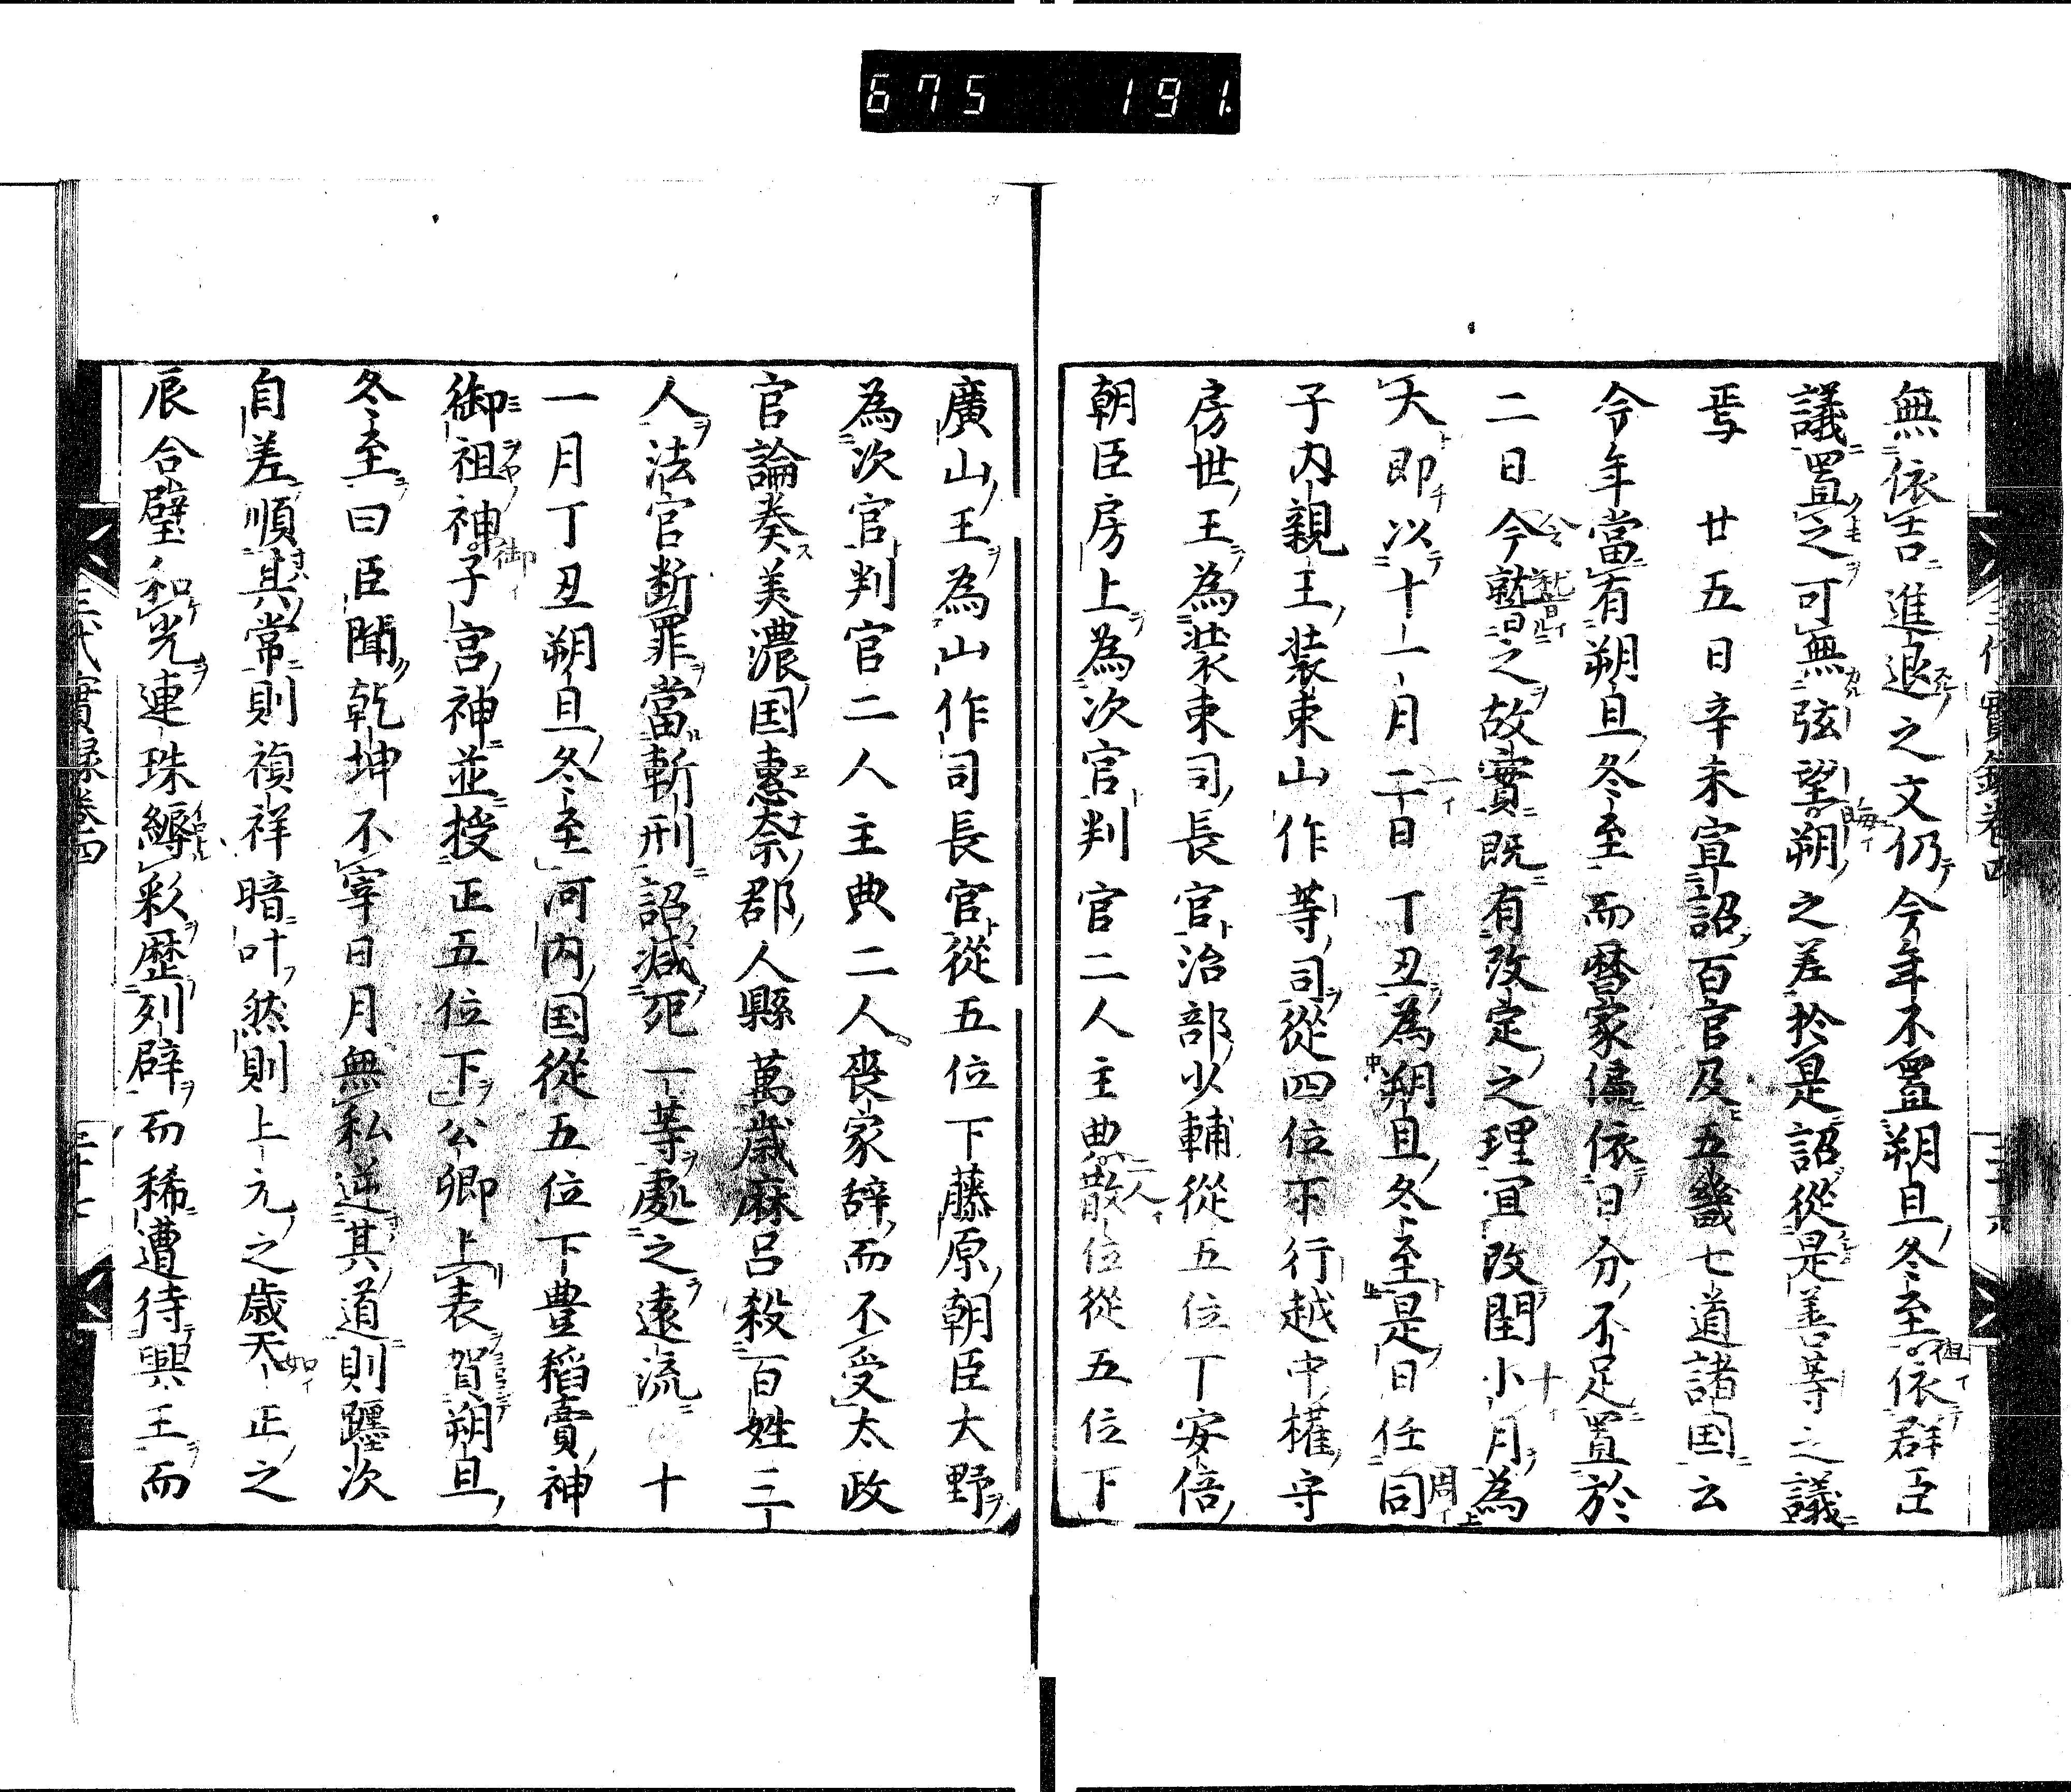 675 191
無依吉進退之文仍今年不置朔旦冬至依群臣
議置之可無弦望朔之差於是詔從是善等之議
焉 廿五日辛未宣詔百官及五畿七道諸国云
今年當有朔旦冬至而暦家偏依日分不足置於
二日今就日之故實既有改定之理宜改閏小月為
大即以十一月二日丁丑為朔旦冬至是日任同
子内親王装束山作等司從四位下行越中權守
房世王為装束司長官治部少輔從五位下安倍
朝臣房上為次官判官二人主典散位從五位下
廣山王為山作司長官從五位下藤原朝臣大野
為次官判官二人主典二人喪家辞而不受太政
官論奏美濃国惠奈郡人縣萬歳麻呂殺百姓三
人法官断罪當斬刑詔減死一等處之遠流 十
一月丁丑朔旦冬至河内国從五位下豊稻賣神
御祖神子宮神並授正五位下公卿上表賀朔旦
冬至曰臣聞乾坤不宰日月無私逆其道則躔次
自差順其常則禎祥暗叶然則上元之歳天正之
辰合璧和光連珠縟彩歴列辟而稀遭待興王而
三代實録卷四